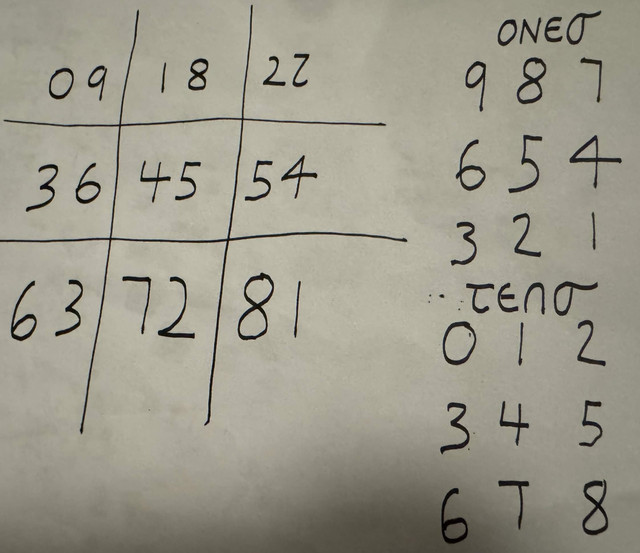 09 18 22
36 45 54
63 72 81
ONEσ
9 8 7
6 5 4
3 2 1
τεnσ
0 1 2
3 4 5
6 7 8